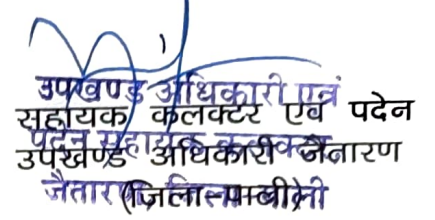 उपखण्ड अधिकारी एवं
सहायक कलक्टर एवं पदेन
पदेन सहायक कलक्टर
उपखण्ड अधिकारी जैतारण
जैतारण